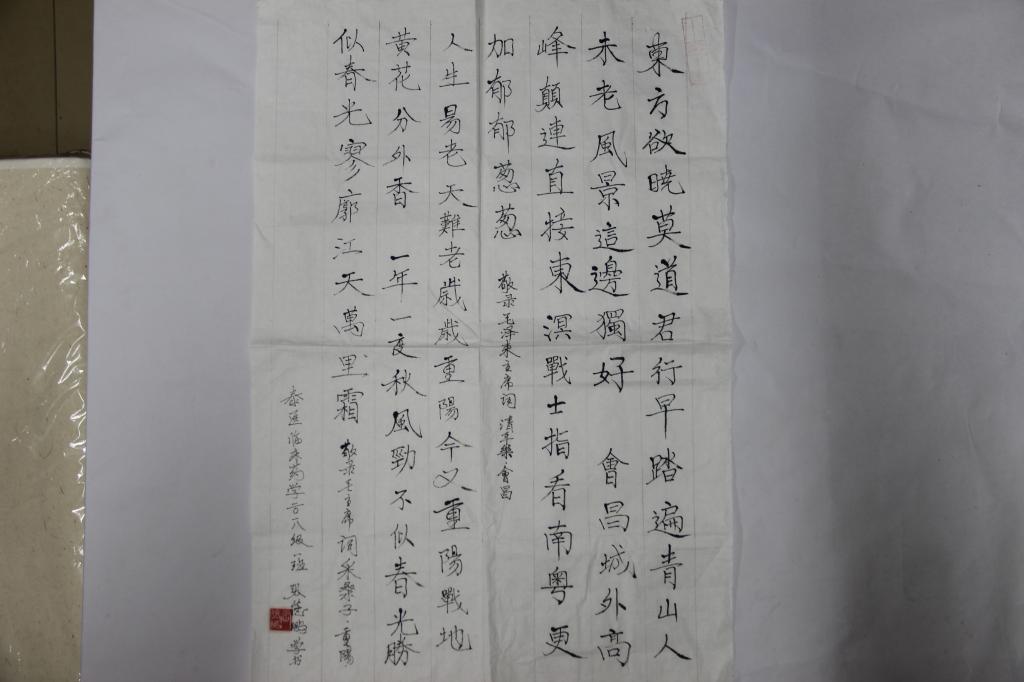 東方欲曉莫道君行早踏遍青山人
未老風景這邊獨好 會昌城外高
峰顛連直接東溟戰士指看南粤更
加郁郁葱葱 敬录毛泽东主席词 清平樂·會昌
人生易老天難老歲歲重陽今又重陽戰地
黄花分外香 一年一度秋風勁不似春光勝
似春光寥廓江天萬里霜 敬录毛主席词采桑子·重陽
泰医临床药学 八级 班 张 学书